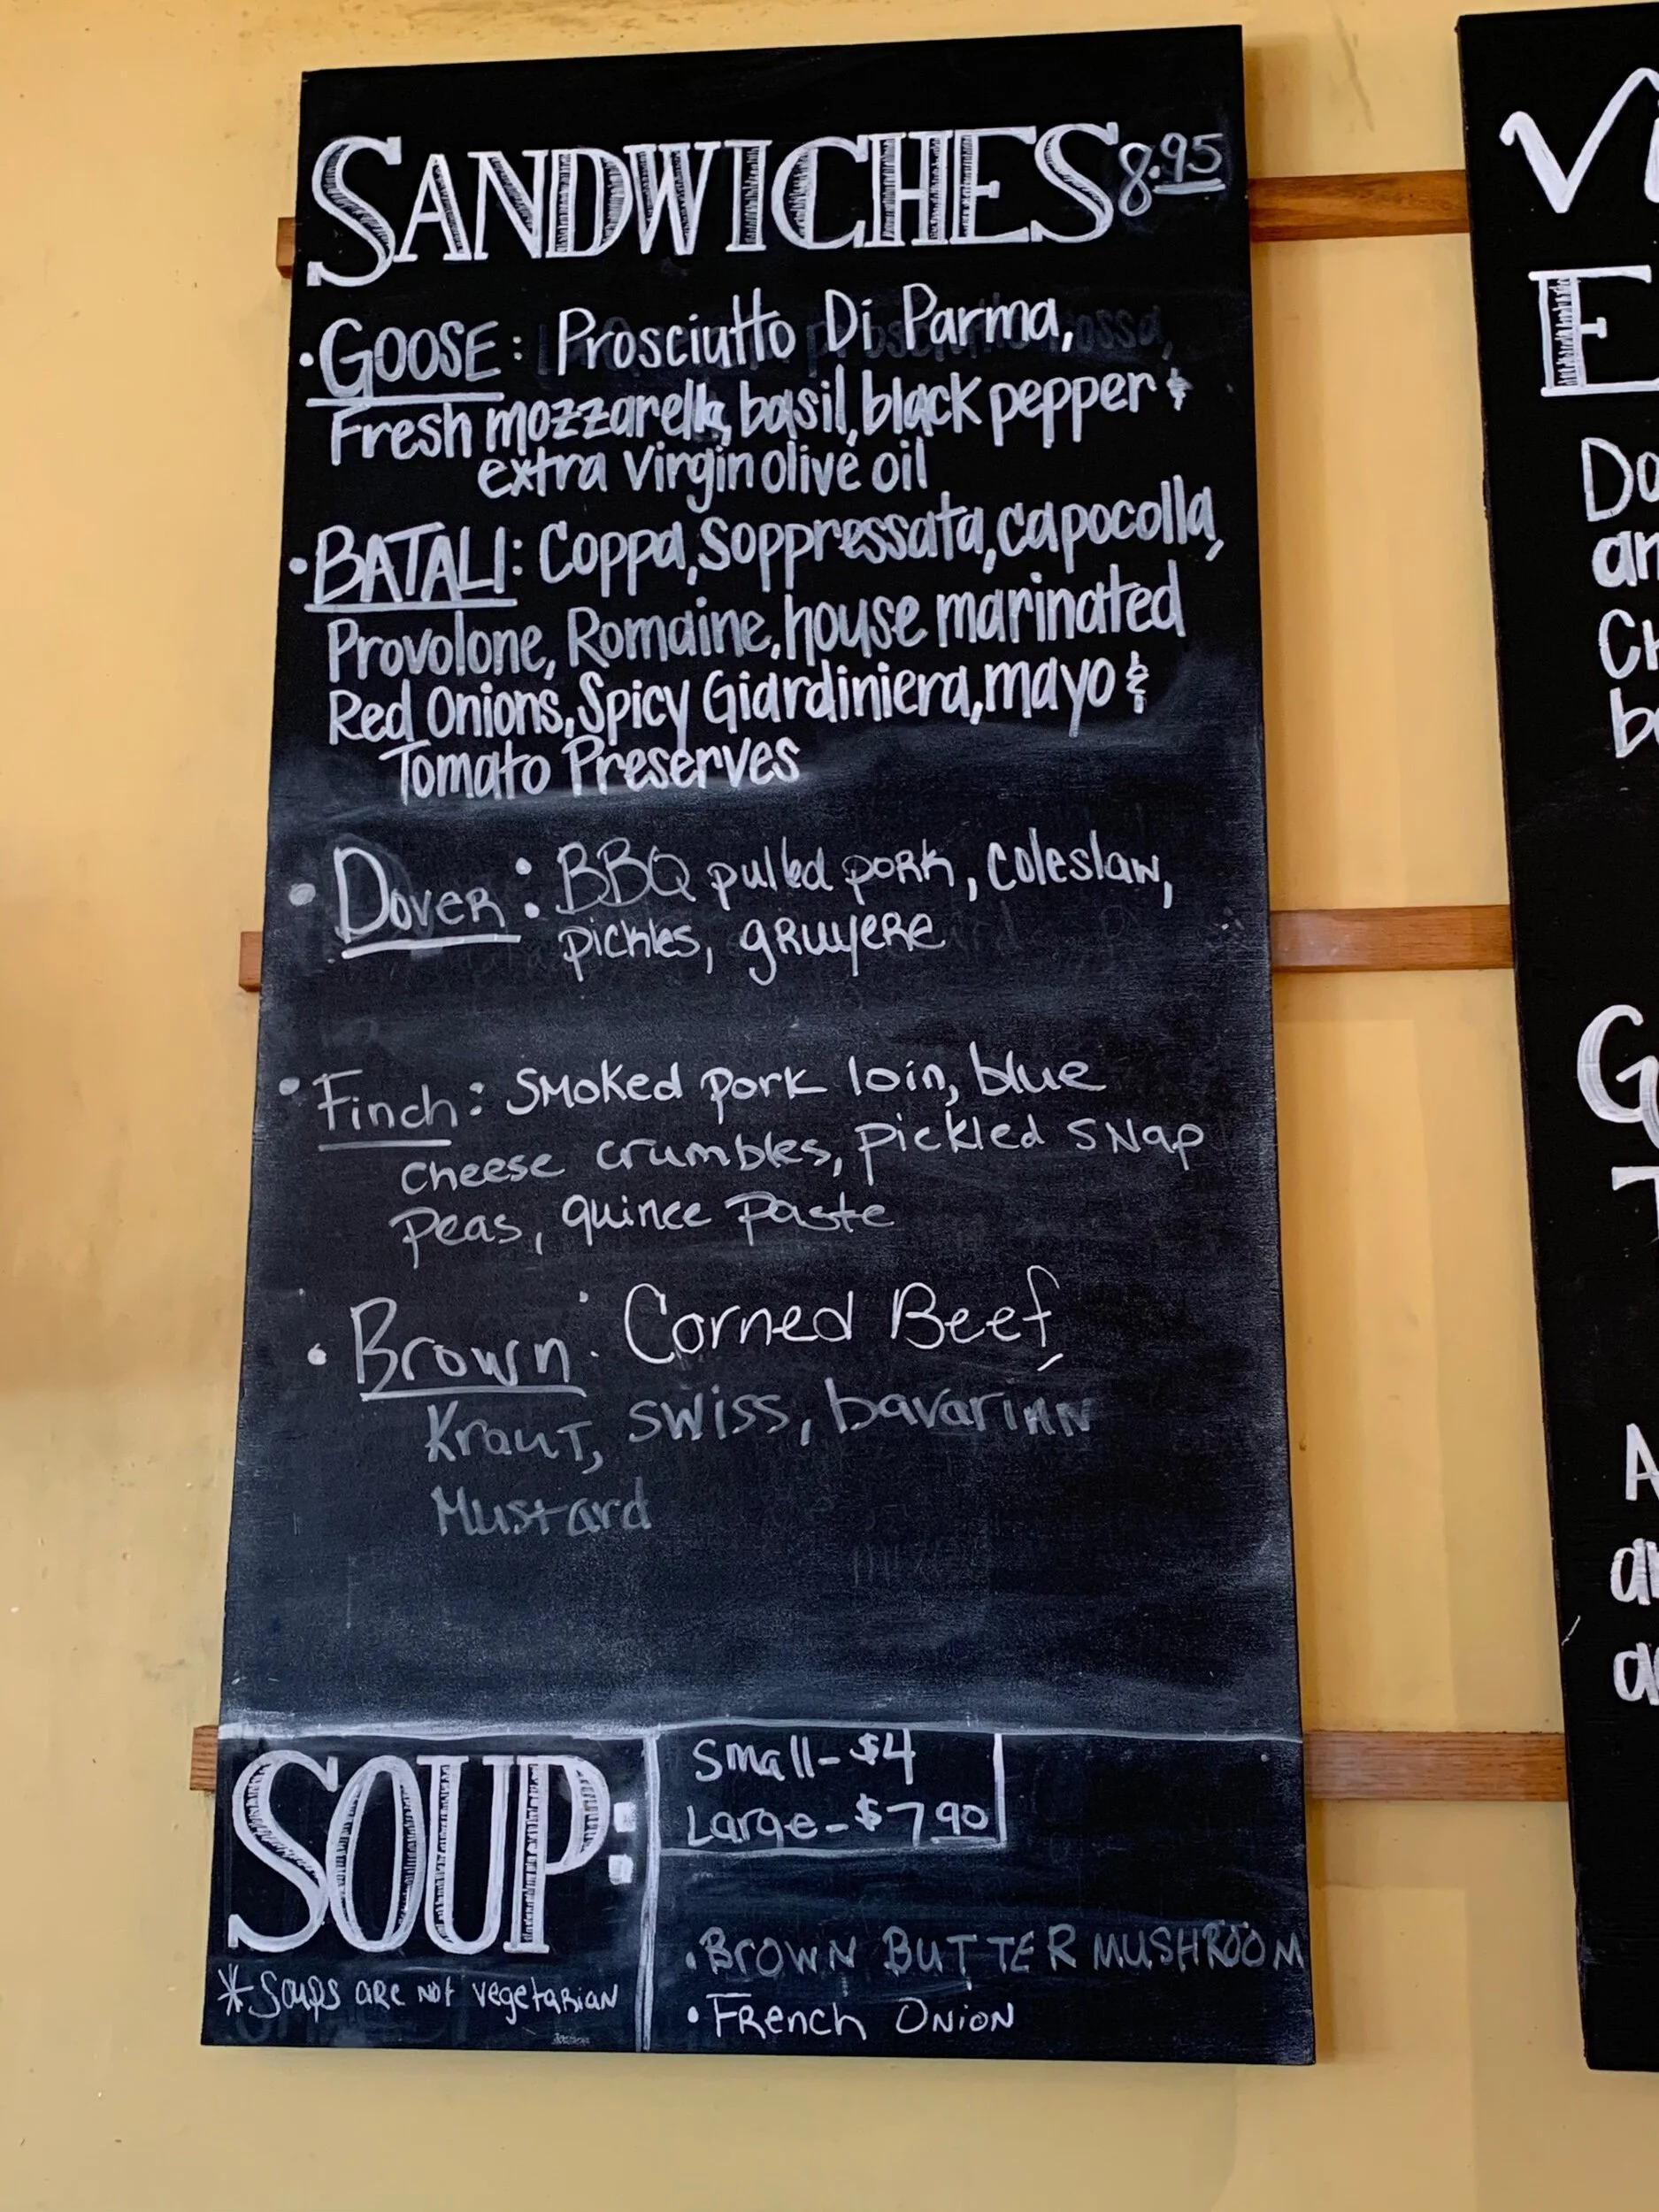 SANDWICHES 8.95
• GOOSE: Prosciutto Di Parma,
Fresh mozzarella, basil, black pepper &
extra virgin olive oil
• BATALI: Coppa, Soppressata, capocolla,
Provolone, Romaine, house marinated
Red Onions, Spicy Giardiniera, mayo &
Tomato Preserves
• Dover: BBQ pulled pork, coleslaw,
pickles, gruyere
• Finch: Smoked pork loin, blue
cheese crumbles, pickled snap
peas, quince paste
• Brown: Corned Beef,
Kraut, swiss, bavarian
Mustard
SOUP:
* Soups are not vegetarian
Small - $4
Large - $7 90
• BROWN BUTTER MUSHROOM
• French Onion
Vi
E
Do
an
Ch
G
T
A
an